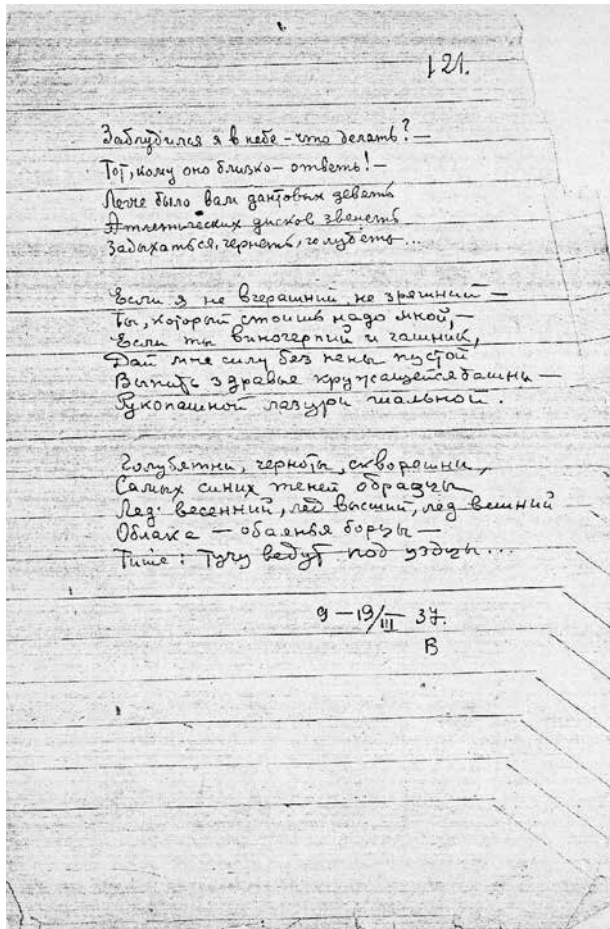 121.
Заблудился я в небе – что делать? —
Тот, кому оно близко — ответь! —
Легче было вам дантовых девять
Атлетических дисков звенеть
Задыхаться, чернеть, голубеть...
Если я не вчерашний, не зряшний —
Ты, который стоишь надо мной, —
Если ты виночерпий и чашник,
Дай мне силу без пены пустой
Выпить здравье кружащейся башни —
Рукопашной лазури шальной.
Голубятни, черноты, скворешни,
Самых синих теней образцы
Лед весенний, лед высший, лед вешний
Облака — обаянья борцы —
Тише: тучу ведут под уздцы...
9 — 19/III 37.
В